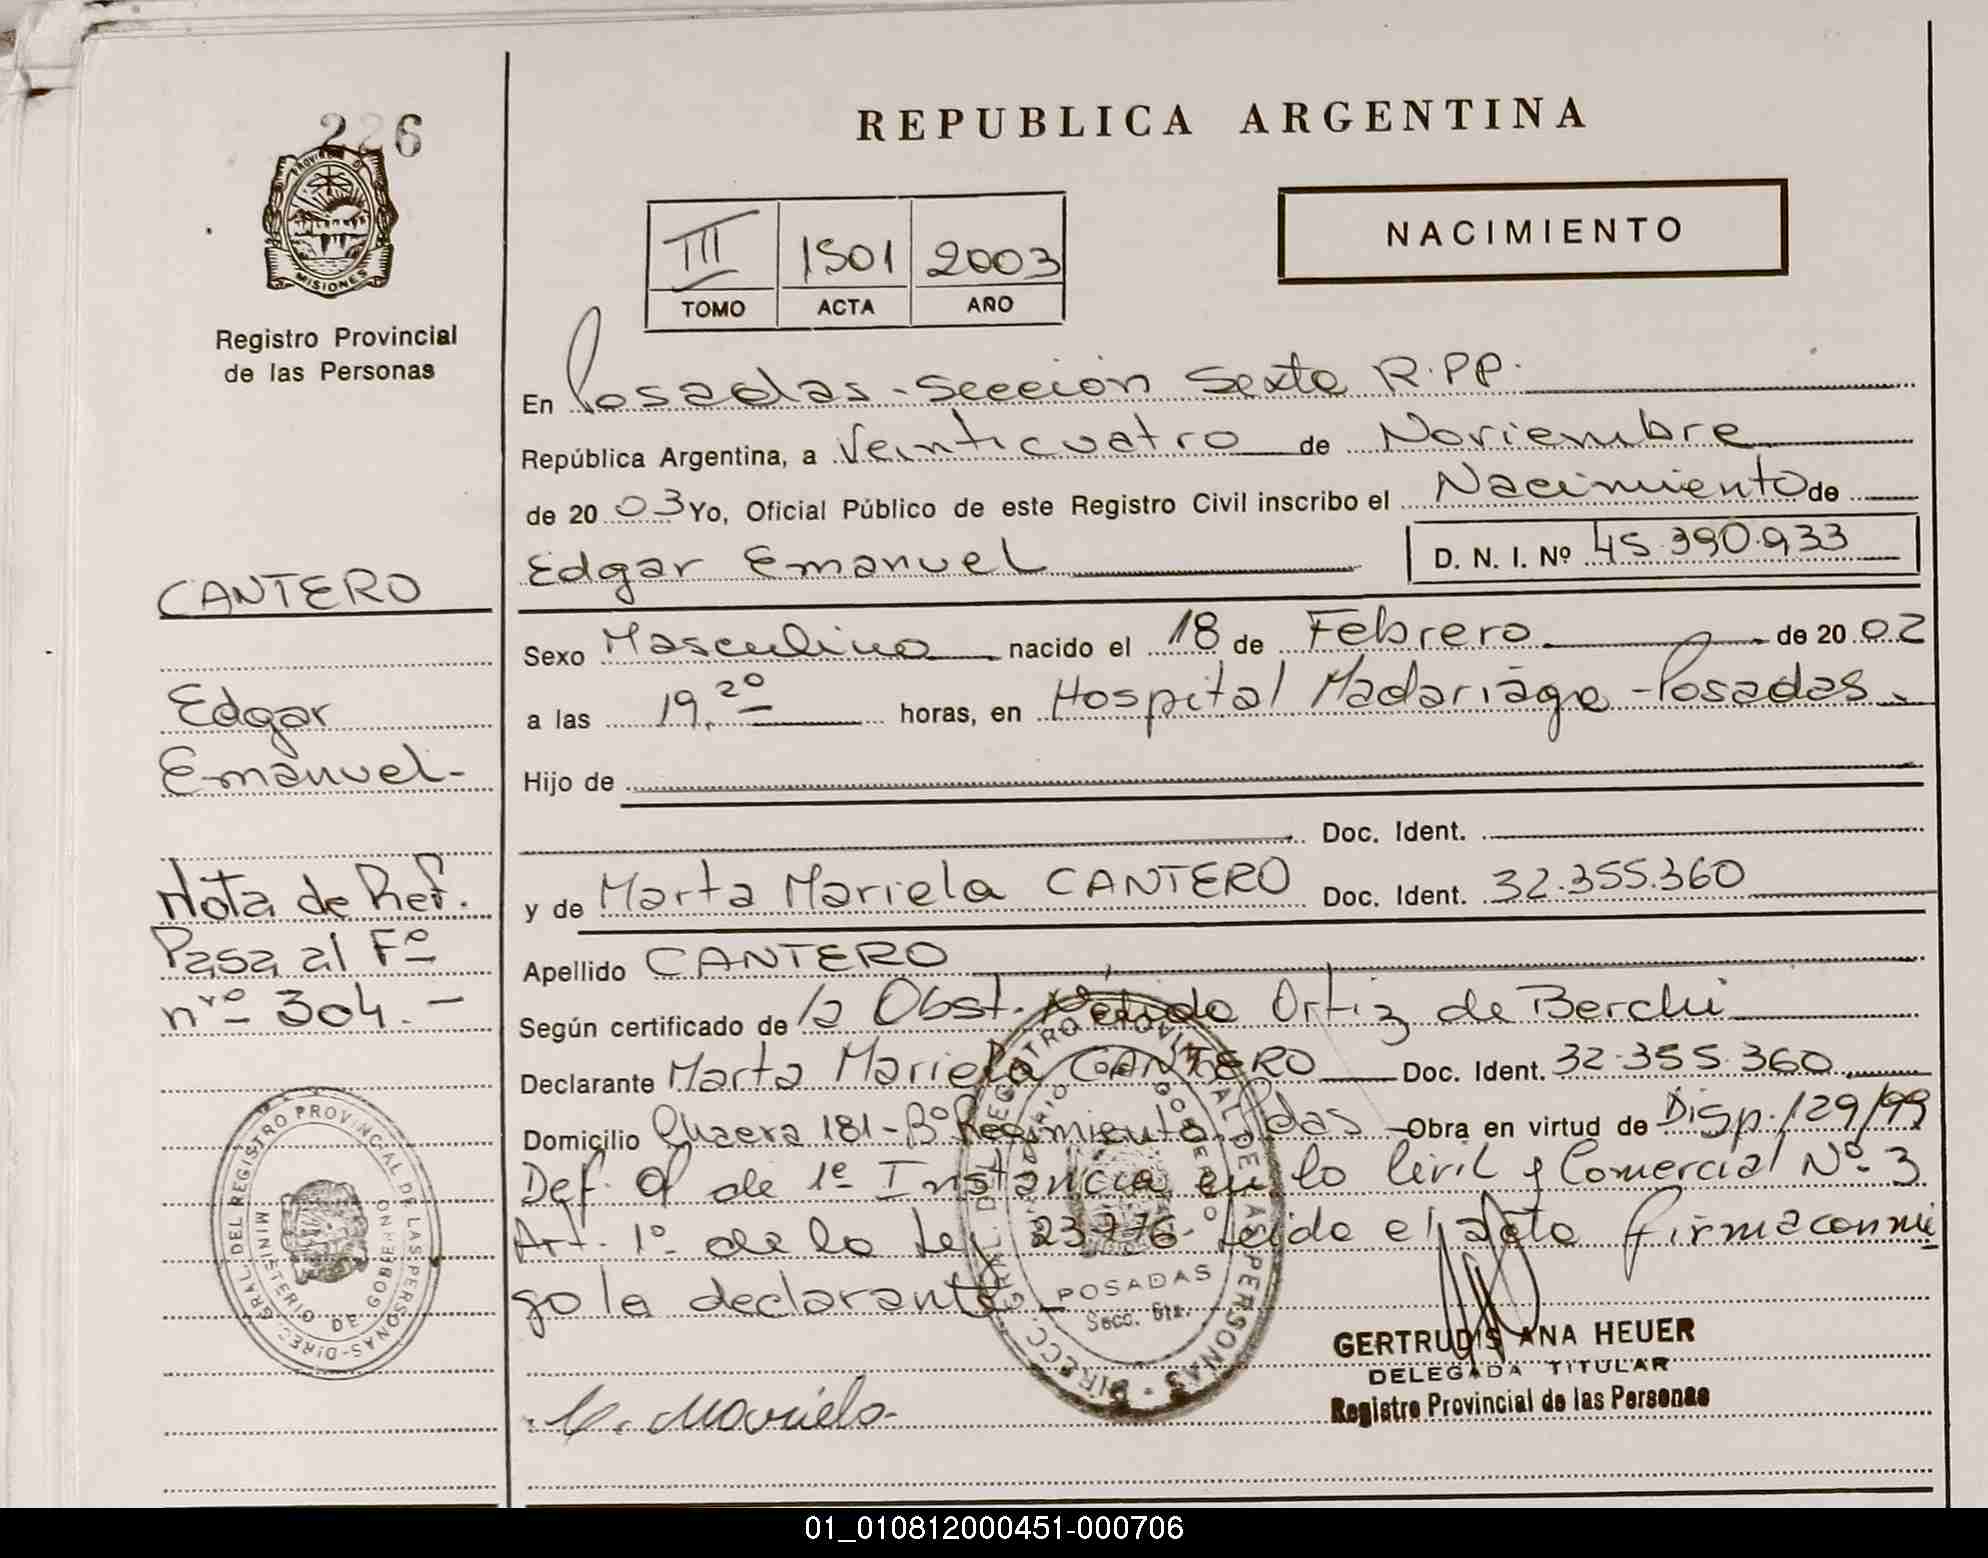 226
PROVINCIA DE
MISIONES
Registro Provincial
de las Personas
REPUBLICA ARGENTINA
NACIMIENTO
III 1501 2003
TOMO ACTA AÑO
En Posadas - Sección Sexta R.PP.
República Argentina, a Veinticuatro de Noviembre
de 20 03 Yo, Oficial Público de este Registro Civil inscribo el Nacimiento de
Edgar Emanuel D. N. I. Nº 45.390.933
Sexo Masculino nacido el 18 de Febrero de 20 02
a las 19,20 horas, en Hospital Madariaga - Posadas
Hijo de
Doc. Ident.
y de Marta Mariela CANTERO Doc. Ident. 32.355.360
Apellido CANTERO
Según certificado de la Obst. Ortiz de Berchi
Declarante Marta Mariela CANTERO Doc. Ident. 32.355.360
Domicilio 181 - Bº Regimiento Pdas Obra en virtud de Disp. 129/99
Def. Of de 1º Instancia en lo Civil y Comercial Nº 3
Art. 1º de la Ley 23776 - Leída el acta firma conmi
go la declarante
M. Mariela
GERTRUDIS ANA HEUER
DELEGADA TITULAR
Registro Provincial de las Personas
CANTERO
Edgar
Emanuel -
Nota de Ref.
Pasa al Fº
nrº 304. -
DIRECC. GRAL. DEL REGISTRO PROVINCIAL DE LAS PERSONAS
MINISTERIO DE GOBIERNO
POSADAS
Secc. 6ta.
DIREC. GRAL DEL REGISTRO PROVINCIAL DE LAS PERSONAS
MINISTERIO DE GOBIERNO
01_010812000451-000706